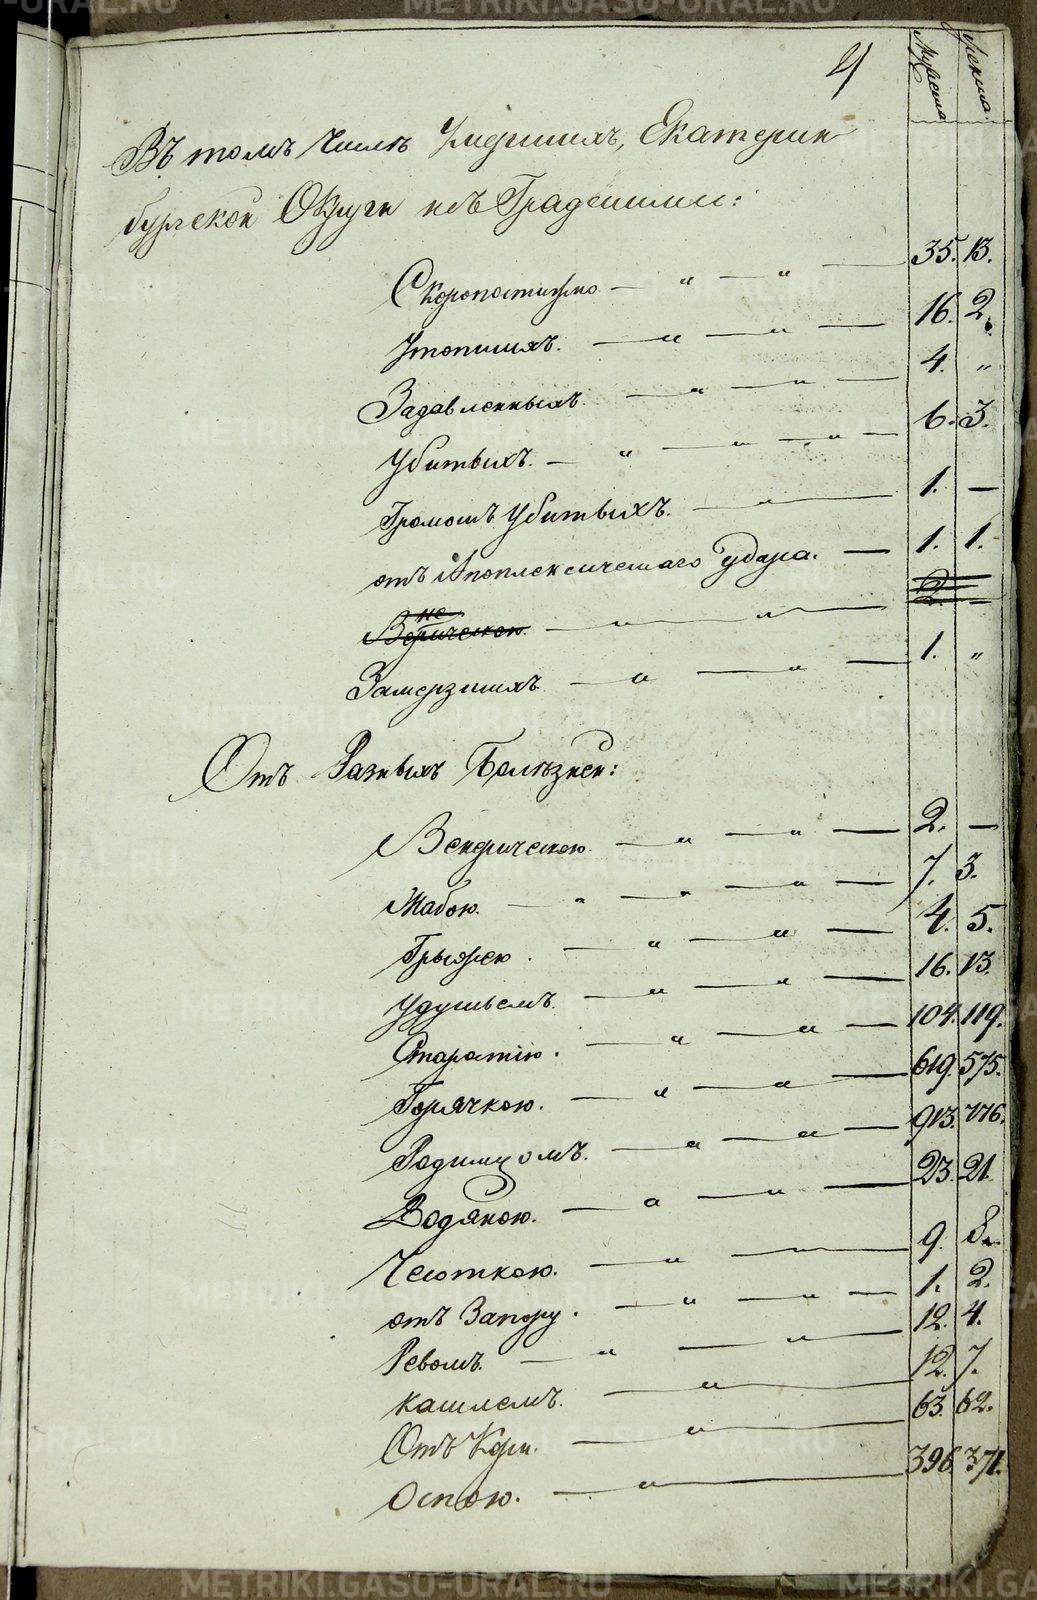 4
Мужеска Женска
Въ томъ Числѣ Умершихъ, Екатерин
бургской Округи съ Градскими:
Скоропостижно — " — " — 35. 13.
Утопшихъ. — " — " — 16. 2.
Задавленныхъ — " — " — 4. "
Убитыхъ. — " — " — " — 6. 3.
Громомъ Убитыхъ. — " — 1. —
отъ Апоплексическаго удара. — 1. 1.
Венерическою. — " — " — 2. —
Замерзшихъ — " — " — 1. "
Отъ Разныхъ Болѣзней:
Венерическою. — " — " — 2. —
Жабою. — " — " — " — 7. 3.
Грыжею. — " — " — 4. 5.
Удушьемъ. — " — " — 16. 13.
Старостію. — " — " — 104. 119.
Горячкою. — " — " — 619. 575.
Родимцомъ. — " — " — 913. 776.
Водяною. — " — " — 23. 21.
Чесоткою. — " — " — 9. 8.
отъ Запору. — " — " — 1. 2.
Ревомъ. — " — " — 12. 4.
кашлемъ. — " — 12. 7.
Отъ Кори. — " — 63. 62.
Оспою. — " — 396. 371.
METRIKI.GASO-URAL.RU